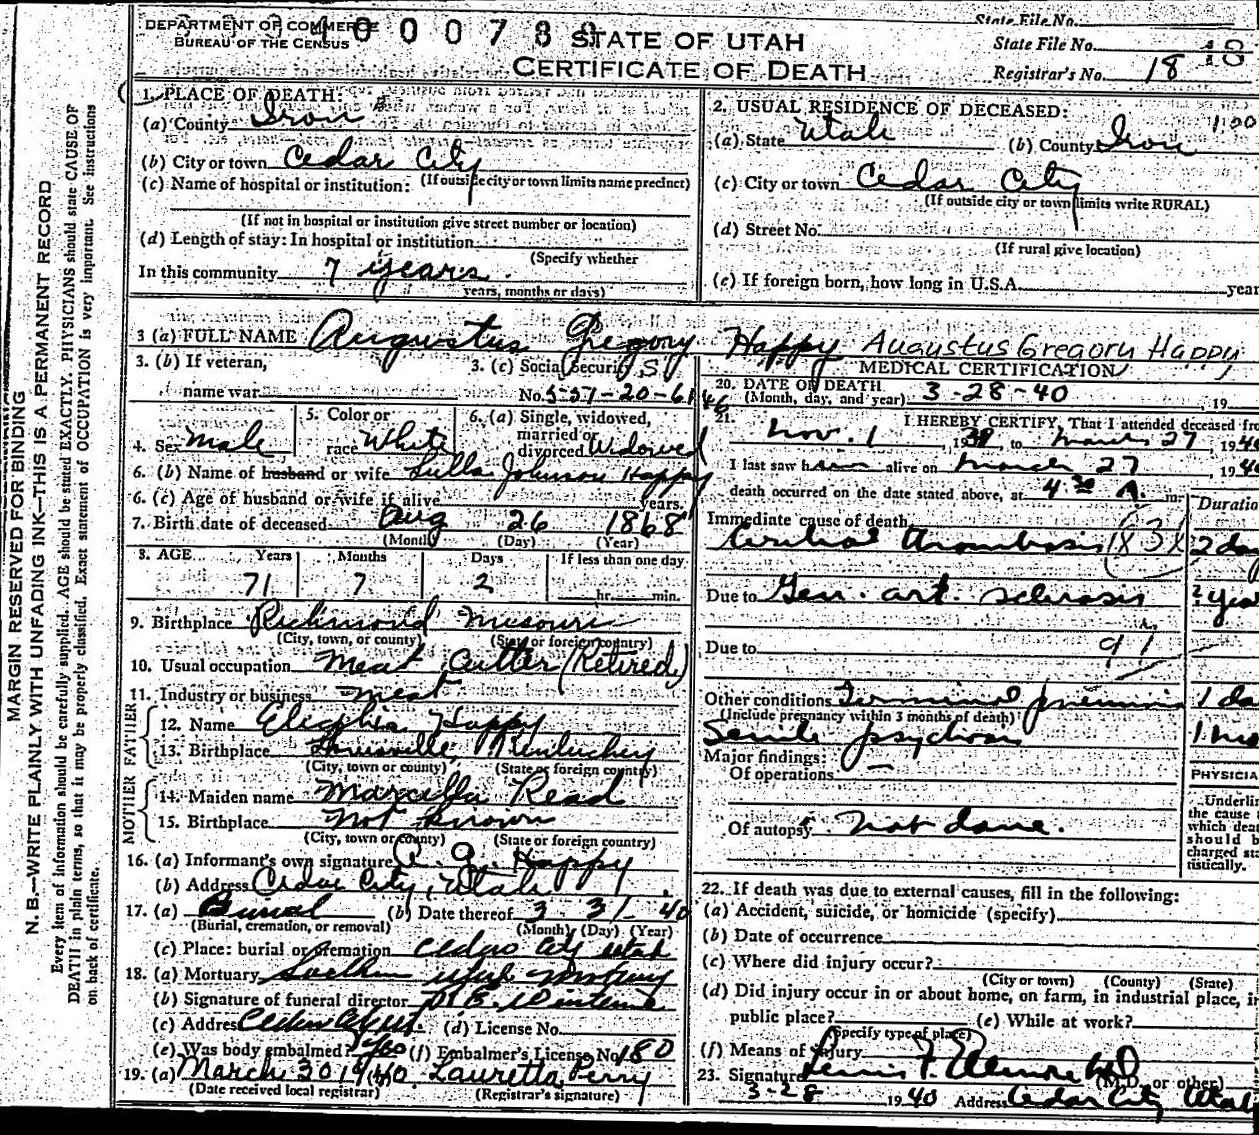 DEPARTMENT OF COMMERCE
BUREAU OF THE CENSUS
STATE OF UTAH
CERTIFICATE OF DEATH
State File No.
State File No. 18
Registrar's No. 18
MARGIN RESERVED FOR BINDING
N. B.—WRITE PLAINLY WITH UNFADING INK—THIS IS A PERMANENT RECORD
Every item of information should be carefully supplied. AGE should be stated EXACTLY. PHYSICIANS should state CAUSE OF
DEATH in plain terms, so that it may be properly classified. Exact statement of OCCUPATION is very important. See instructions
on back of certificate.
1. PLACE OF DEATH:
(a) County Iron
(b) City or town Cedar City
(If outside city or town limits name precinct)
(c) Name of hospital or institution:
(If not in hospital or institution give street number or location)
(d) Length of stay: In hospital or institution
(Specify whether
In this community 7 years.
years, months or days)
2. USUAL RESIDENCE OF DECEASED:
(a) State Utah (b) County Iron
(c) City or town Cedar City
(If outside city or town limits write RURAL)
(d) Street No.
(If rural give location)
(e) If foreign born, how long in U.S.A. year
3 (a) FULL NAME Augustus Gregory Happy Augustus Gregory Happy
3. (b) If veteran,
name war
3. (c) Social Security
No. 557-20-6146
4. Sex male
5. Color or
race White
6. (a) Single, widowed,
married or
divorced Widowed
6. (b) Name of husband or wife Lulla Johnson Happy
6. (c) Age of husband or wife if alive years.
7. Birth date of deceased Aug 26 1868
(Month) (Day) (Year)
8. AGE Years Months Days If less than one day
71 7 2 hr. min.
9. Birthplace Richmond Missouri
(City, town, or county) (State or foreign country)
10. Usual occupation Meat Cutter (Retired)
11. Industry or business meat
FATHER
12. Name Happy
13. Birthplace Louisville, Kentuckey
(City, town or county) (State or foreign country)
MOTHER
14. Maiden name Marcilla Read
15. Birthplace Not known
(City, town or county) (State or foreign country)
16. (a) Informant's own signature A. G. Happy
(b) Address Cedar City, Utah
17. (a) Burial (b) Date thereof 3 31 40
(Burial, cremation, or removal) (Month) (Day) (Year)
(c) Place: burial or cremation Cedar City Utah
18. (a) Mortuary Southern Utah Mortuary
(b) Signature of funeral director
(c) Address Cedar City Ut. (d) License No.
(e) Was body embalmed? yes (f) Embalmer's License No. 180
19. (a) March 30 1940. Lauretta Perry
(Date received local registrar) (Registrar's signature)
MEDICAL CERTIFICATION
20. DATE OF DEATH
(Month, day, and year) 3-28-40, 19
21. I HEREBY CERTIFY, That I attended deceased fro
Nov. 1, 1939, to March 27, 1940
I last saw him alive on March 27, 1940
death occurred on the date stated above, at 4:30 A. m.
Duratio
Immediate cause of death
Cerebral thrombosis 2 day
Due to Gen. art. sclerosis ? yea
Due to 91
Other conditions Terminal pneumonia 1 da
(Include pregnancy within 3 months of death)
Senile psychosis 1 mo
Major findings:
Of operations —
Of autopsy not done.
PHYSICIA
Underlin
the cause
which deat
should b
charged sta
tistically.
22. If death was due to external causes, fill in the following:
(a) Accident, suicide, or homicide (specify)
(b) Date of occurrence
(c) Where did injury occur?
(City or town) (County) (State)
(d) Did injury occur in or about home, on farm, in industrial place, in
public place? (e) While at work?
(Specify type of place)
(f) Means of injury
23. Signature (M.D. or other)
3-28 1940 Address Cedar City Utah